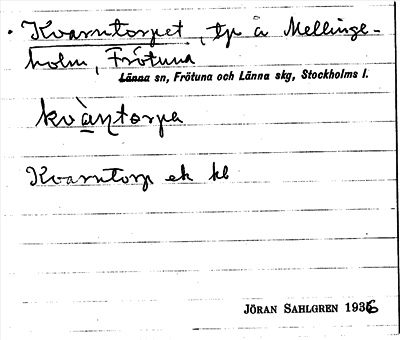 Kvarntorpet, tp å Mellinge-
holm, Frötuna
Länna sn, Frötuna och Länna skg, Stockholms l.
kvàɳtorpe
Kvarntorp ek kb
JÖRAN SAHLGREN 1936